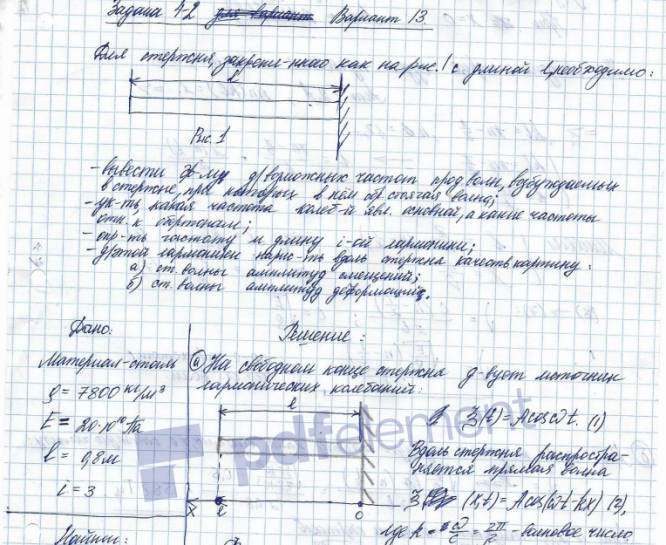 Задача 4-2 Вариант 13
Для стержня, закреплённого как на рис. 1 с длиной l, необходимо:
l
Рис. 1
- вывести ф-лу д/возможных частот прод волн, возбуждаемых
в стержне, при которых в нём обр. стоячая волна;
- ук-ть, какая частота колеб-й явл. основной, а какие частоты
отн. к обертонам;
- опр-ть частоту и длину i-ой гармоники;
- д/этой гармоники нарис-ть вдоль стержня качеств картину:
а) ст. волны амплитуд смещений;
б) ст. волны амплитуд деформаций.
Дано:
Решение:
Материал-сталь
ρ = 7800 кг/м³
E = 20·10¹⁰ Па
l = 0,8 м
i = 3
Найти:
На свободном конце стержня д-вует источник
гармонических колебаний:
l
ξ(t) = A cos ωt. (1)
Вдоль стержня распростра-
няется прямая волна
ξ (x,t) = A cos(ωt - kx) (2),
где k = ω/c = 2π/λ - волновое число
x
l
0
pdfelement